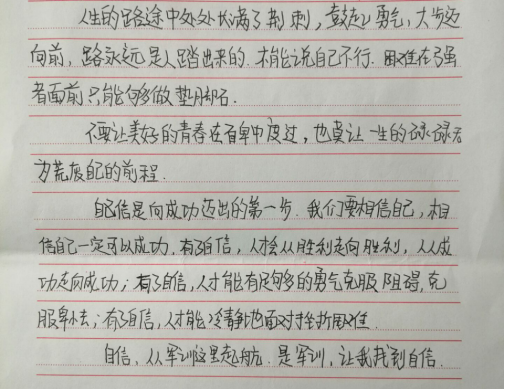 人生的路途中处处长满了荆刺，鼓起勇气，大步迈
向前，路永远是人踏出来的.不能说自己不行.困难在强
者面前只能够做垫脚石.
不要让美好的青春在自卑中度过，也莫让一生的碌碌无
为荒废自己的前程.
自信是向成功迈出的第一步.我们要相信自己，相
信自己一定可以成功.有了自信，人才会从胜利走向胜利，从成
功走向成功；有了自信，人才能有足够多的勇气克服阻碍，克
服卑怯；有了自信，人才能冷静地面对挫折困难.
自信，从军训这里起航.是军训，让我找到自信.